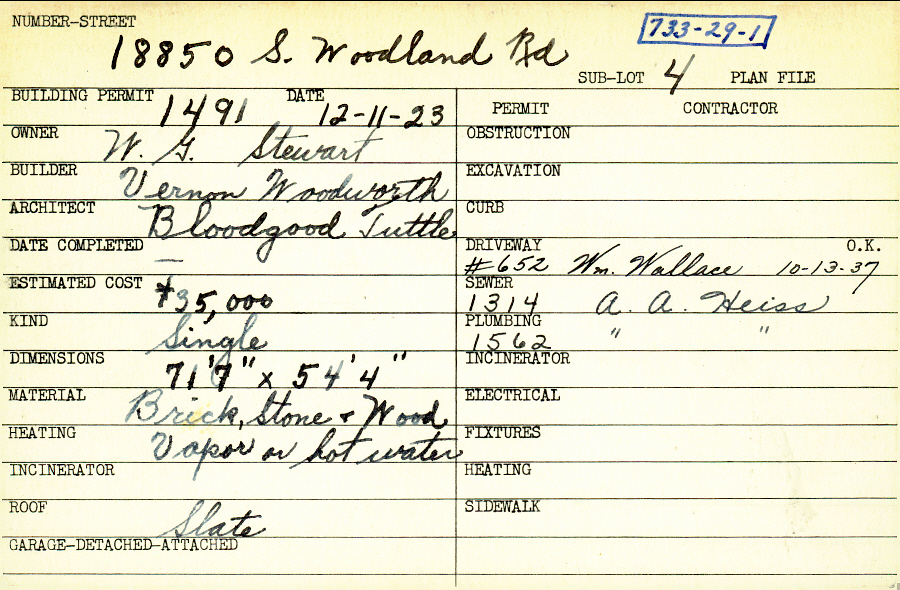 NUMBER-STREET
733-29-1
18850 S. Woodland Rd
SUB-LOT 4 PLAN FILE
BUILDING PERMIT 1491 DATE 12-11-23
PERMIT CONTRACTOR
OWNER W. G. Stewart
OBSTRUCTION
BUILDER Vernon Woodworth
EXCAVATION
ARCHITECT Bloodgood Tuttle
CURB
DATE COMPLETED —
DRIVEWAY O.K.
#652 Wm. Wallace 10-13-37
ESTIMATED COST $35,000
SEWER
1314 A. A. Heiss
KIND Single
PLUMBING
1562 " "
DIMENSIONS 71'7" x 54'4"
INCINERATOR
MATERIAL Brick, Stone & Wood
ELECTRICAL
HEATING Vapor or hot water
FIXTURES
INCINERATOR
HEATING
ROOF Slate
SIDEWALK
GARAGE-DETACHED-ATTACHED